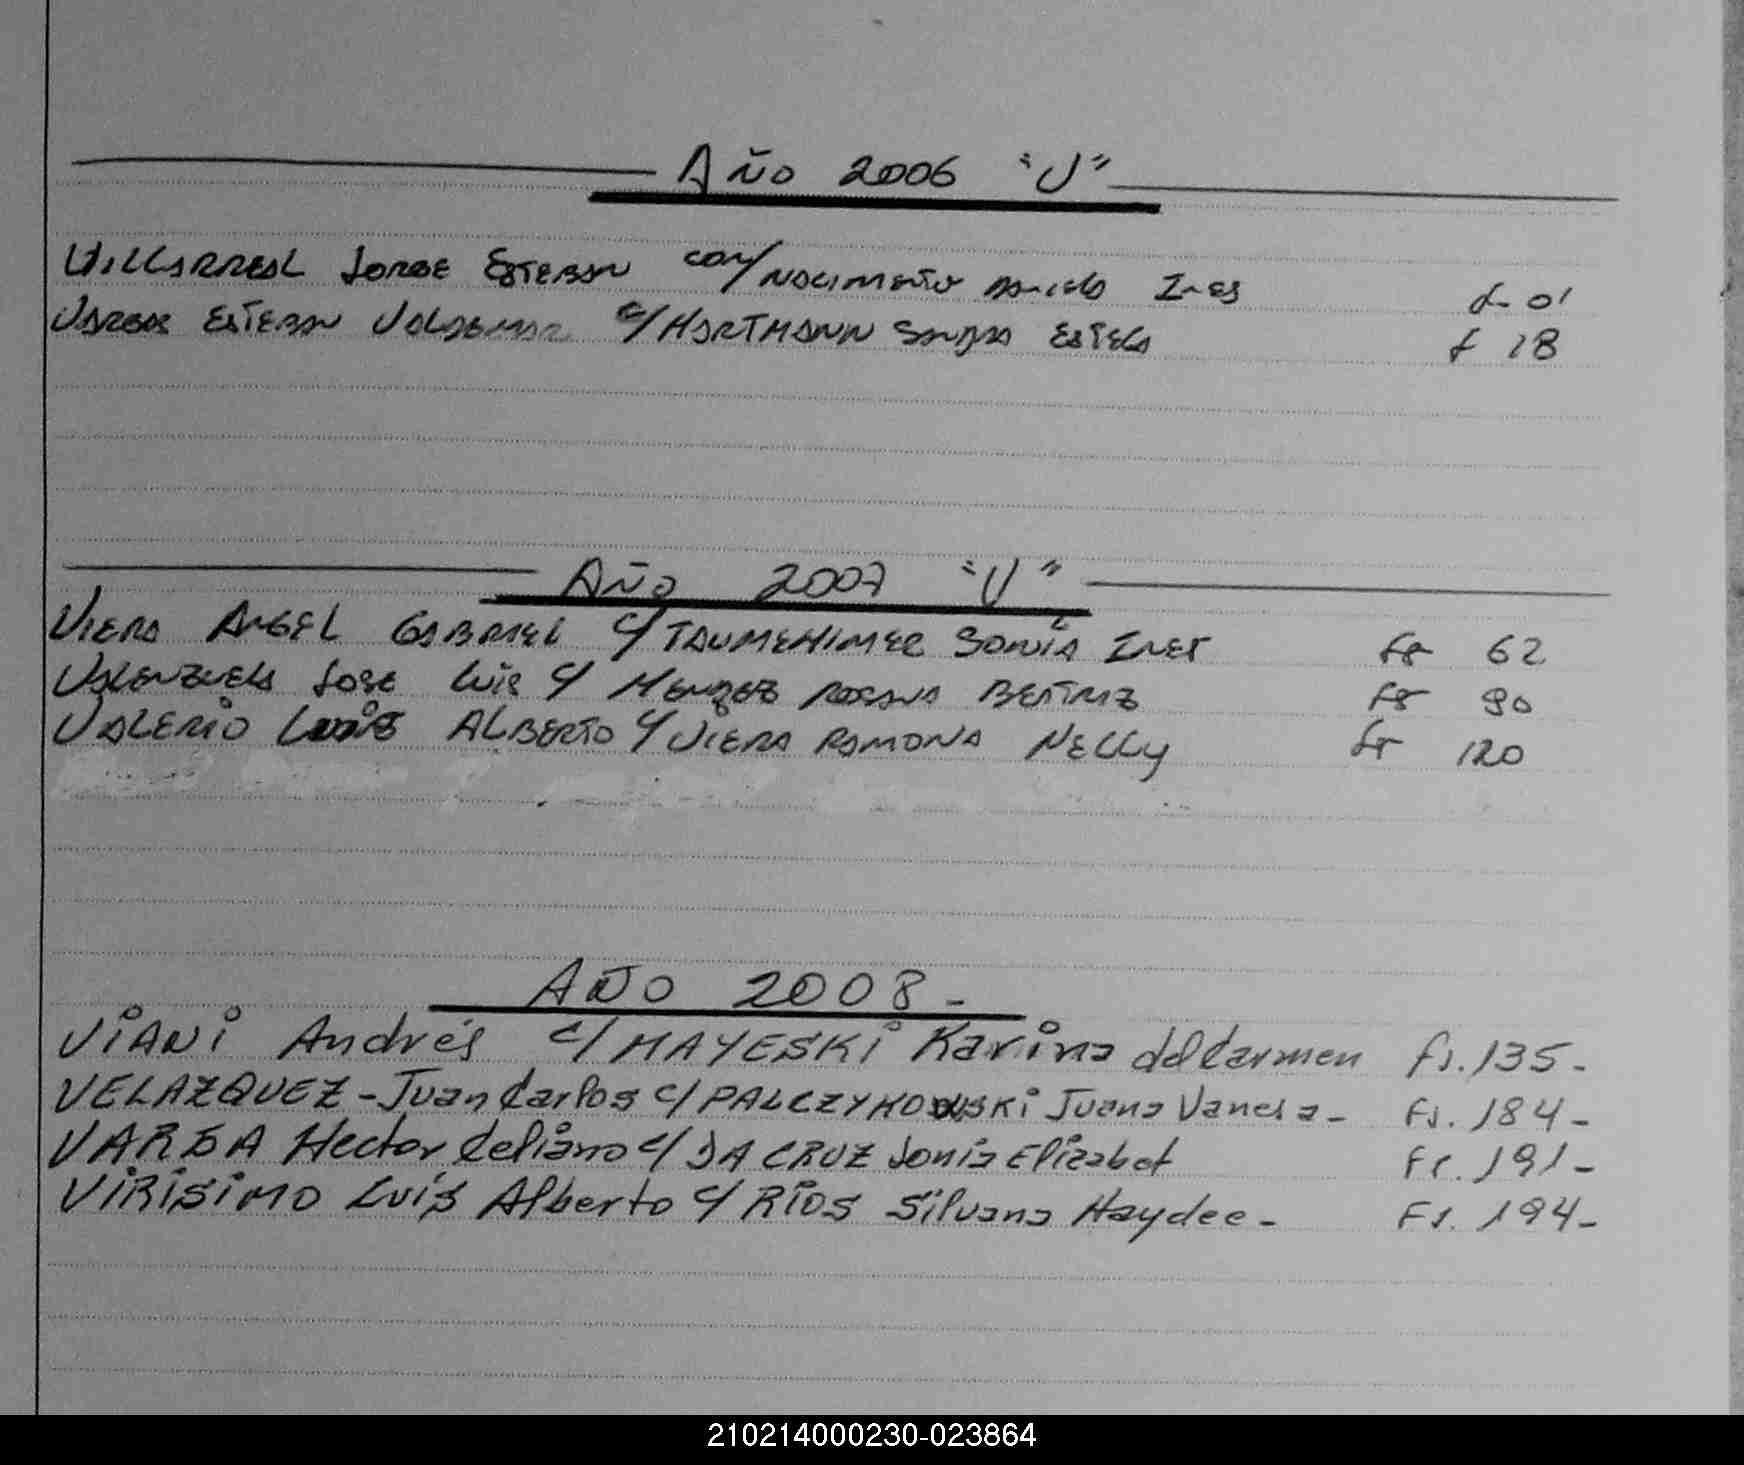 Año 2006 "V"
VILLARREAL JORGE ESTEBAN con/ NACIMENTO DANIELA INES f- 01
VARGAS ESTEBAN VALDEMAR c/ HARTMANN SANDRA ESTELA f 18
Año 2007 "V"
VIERA ANGEL GABRIEL c/ TAUMEHIMER SONIA INES fs 62
VALENZUELA JOSE LUIS c/ MENDEZ ROSANA BEATRIZ fs 90
VALERIO LUIS ALBERTO c/ VIERA RAMONA NELLY fs 120
AÑO 2008-
VIANI Andrés c/ MAYESKI Karina del Carmen fs. 135-
VELAZQUEZ - Juan Carlos c/ PALCZYKOWSKI Juana Vanesa- Fs. 184-
VARGA Hector Celiano c/ DA CRUZ Sonia Elizabet Fs. 191-
VIRISIMO Luis Alberto c/ RIOS Silvana Haydee- Fs. 194-
210214000230-023864